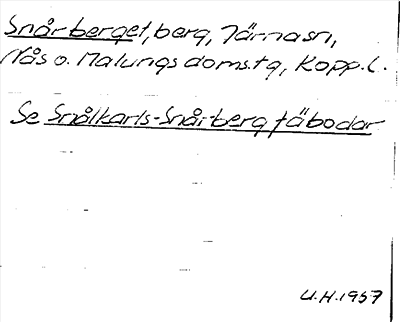 Snårberget, berg, Järnasn,
Nås o. Malungs doms.tg, Kopp. l.
Se Snålkarls-Snårberg fäbodar
U.H. 1957